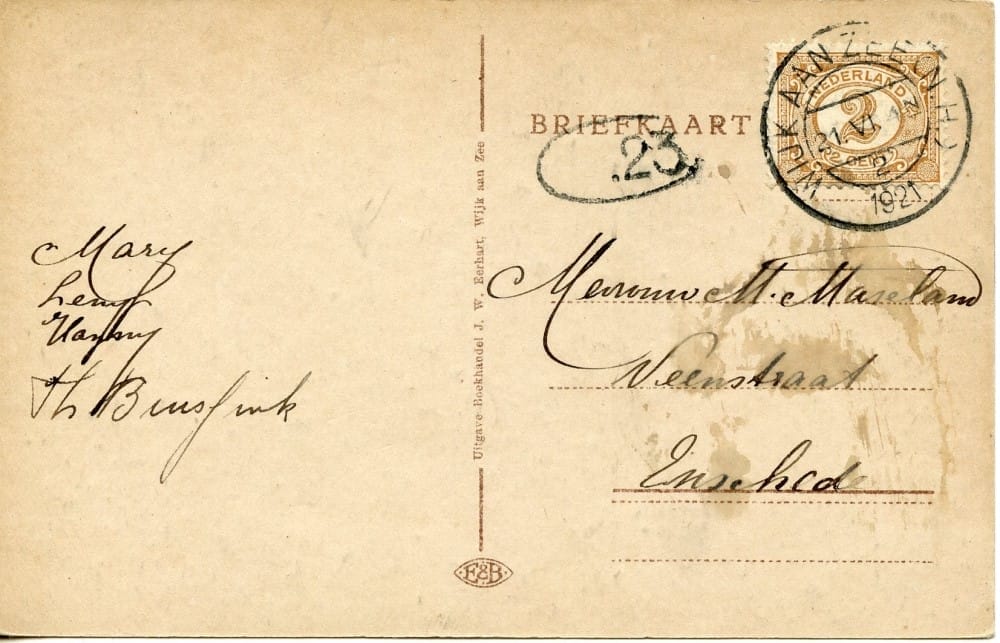 BRIEFKAART
WIJK AAN ZEE (N.H.)
NEDERLAND
2
21.VI
2 CENT
1921
.23
Mary
Hanny
Th
Mevrouw M. Maseland
Veenstraat
Enschede
Uitgave Boekhandel J. W. Eerhart, Wijk aan Zee
E&B